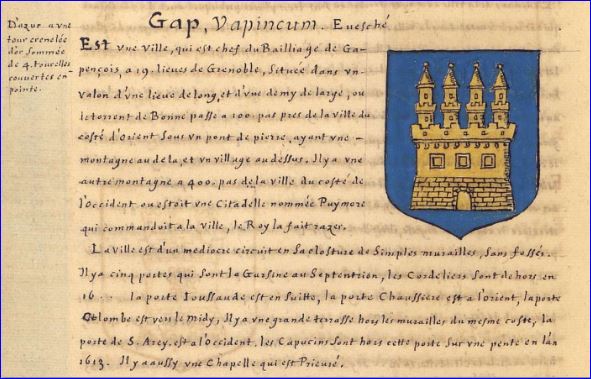 Gap, Vapincum. Evesché
D'azur a vne
tour crenelée
d'or sommée
de 4. tourelles
couvertes en
pointe.
Est vne ville, qui est chef du Bailliage de Ga-
pençois, a 19. lieues de Grenoble, Située dans vn
valon d'vne lieue de long, et d'vne demy de large, ou
le torrent de Bonne passe a 100. pas pres de la ville du
costé d'Orient Sous vn pont de pierre, ayant vne
montagne au dela, et vn village au dessus. Il y a vne
autre montagne a 400. pas de la ville du costé de
l'Occident ou estoit vne Citadelle nommée Puymore
qui commandoit a la ville, le Roy la fait razer.
La ville est d'un mediocre circuit en Sa closture de Simples murailles, sans fossés.
Il y a cinq portes qui sont la Garsine au Septentrion, les Cordeliers Sont dehors en
16... la porte est en Suitte, la porte Chaussiere est a l'orient, la porte
Colombe est vers le midy, Il y a vne grande terrasse hors les murailles du mesme coste, la
porte de S. Arey, est a l'Occident, les Capucins Sont hors cette porte Sur vne pente en l'an
1613. Il y a aussy vne Chapelle qui est Prieuré.